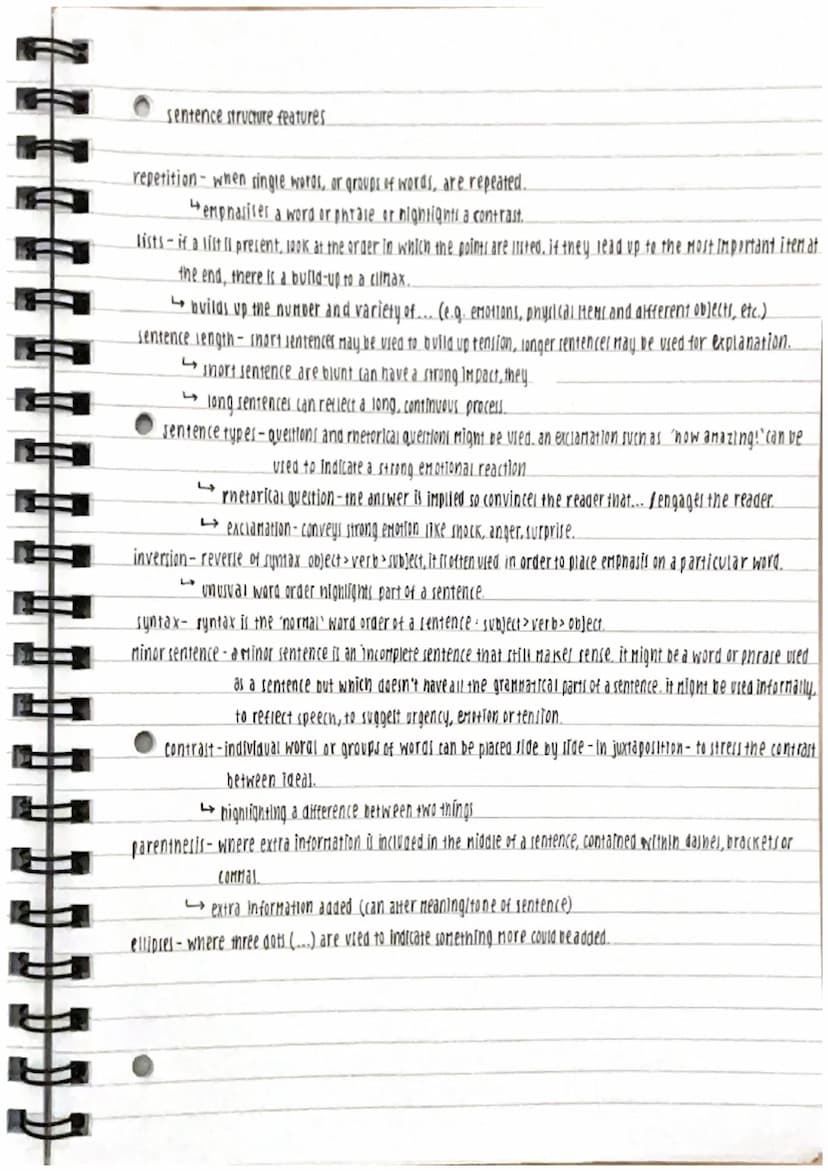 sentence structure features
repetition - when single words, or groups of words, are repeated.
↳ emphasises a word or phrase or highlights a contrast.
lists - if a list is present, look at the order in which the points are listed. if they lead up to the most important item at
the end, there is a build-up to a climax.
↳ builds up the number and variety of... (e.g. emotions, physical items and different objects, etc.)
sentence length - short sentences may be used to build up tension, longer sentences may be used for explanation.
↳ short sentence are blunt can have a strong impact, they
↳ long sentences can reflect a long, continuous process.
sentence types - questions and rhetorical questions might be used. an exclamation such as 'how amazing!' can be
used to indicate a strong emotional reaction
↳ rhetorical question - the answer is implied so convinces the reader that... / engages the reader.
↳ exclamation - conveys strong emotion like shock, anger, surprise.
inversion - reverse of syntax object > verb > subject, it is often used in order to place emphasis on a particular word.
↳ unusual word order highlights part of a sentence.
syntax - syntax is the 'normal' word order of a sentence : subject > verb > object.
minor sentence - a minor sentence is an incomplete sentence that still makes sense. it might be a word or phrase used
as a sentence but which doesn't have all the grammatical parts of a sentence. it might be used informally,
to reflect speech, to suggest urgency, emotion or tension.
contrast - individual words or groups of words can be placed side by side - in juxtaposition - to stress the contrast
between ideas.
↳ highlighting a difference between two things
parenthesis - where extra information is included in the middle of a sentence, contained within dashes, brackets or
commas.
↳ extra information added (can alter meaning/tone of sentence)
ellipses - where three dots (...) are used to indicate something more could be added.